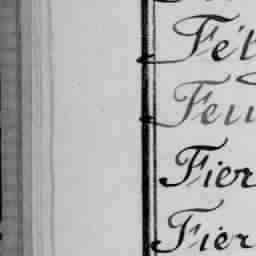 Fél
Feu
Fier
Fier